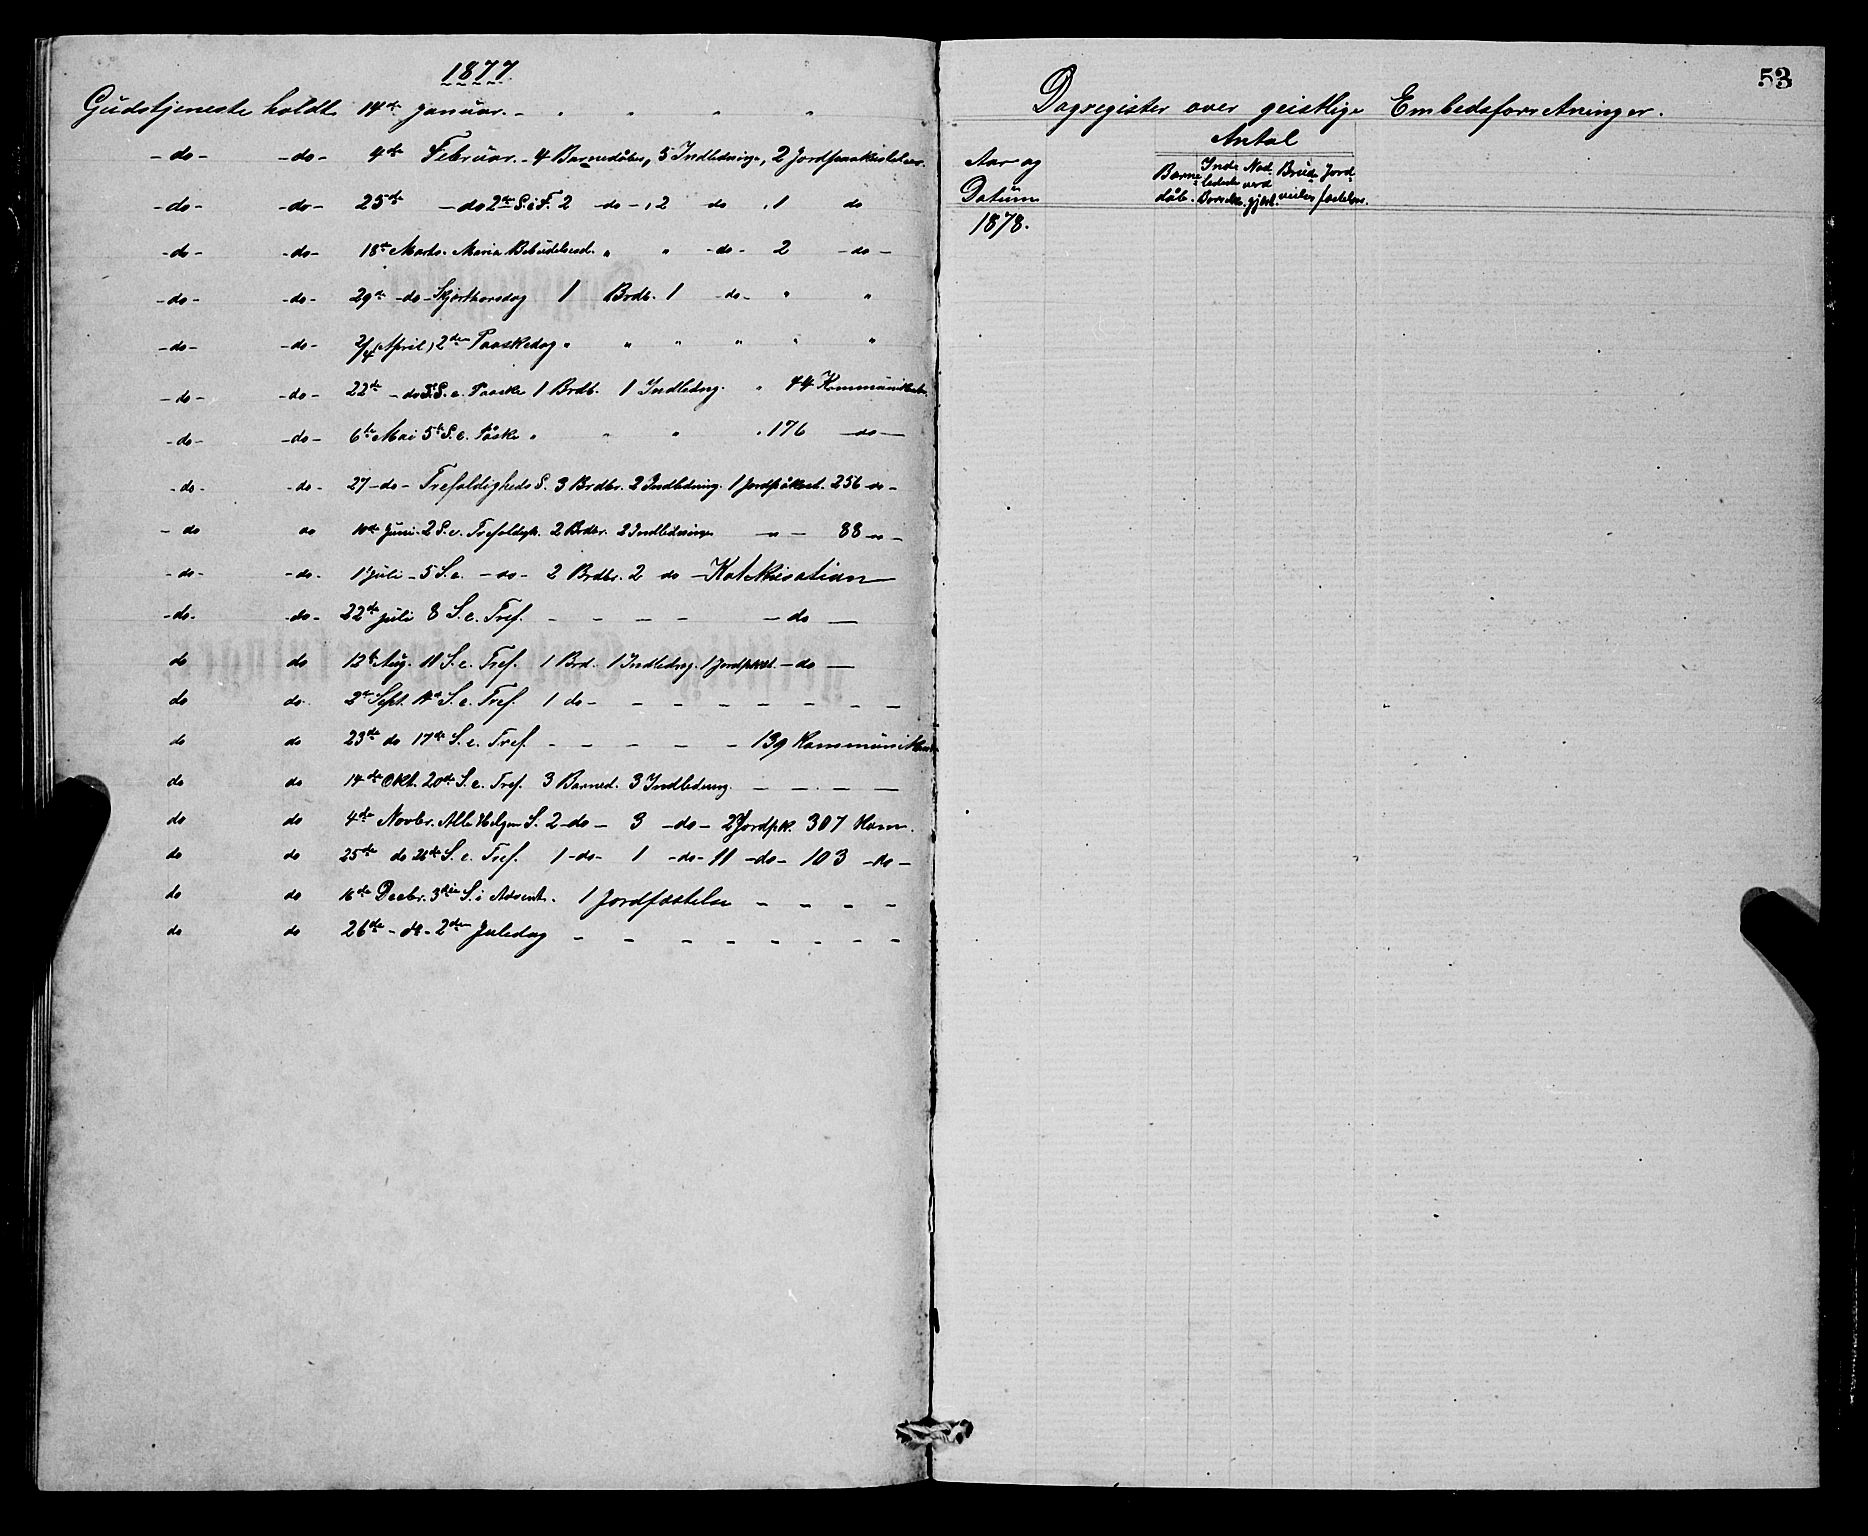 1877
Gudstjeneste holdt 14de Januar. - " " " "
- do - - do - 4de Februar. - 4 Barnedåber, 5 Indledninge, 2 Jordpaakastelser.
- do - - do - 25de - do 2de S. i F. 2 - do - , 2 do , 1 do
- do - - do - 18de Marts. Maria Bebudelsesd. " " - do - 2 - do -
- do - - do - 29de - do - Skjærthorsdag 1 Brdb. 1 - do - " "
- do - - do - 2/4 April, 2den Paaskedag " " " " " "
- do - - do - 22de - do 3 S. e. Paaske 1 Brdb. 1 Indledng. " 44 Kommunikanter
- do - - do - 6te Mai 5te S. e. Påske " " " " 176 - do -
- do - - do - 27 - do - Trefoldigheds S. 3 Brdbr. 2 Indledning. 1 Jordpåkast. 256 do -
- do do 10de Juni. 2 S. e. Trefoldgh. 2 Brdbr. 2 Indledninger - " - 88 - " -
- do - - do - 1 Juli - 5 S. e. - do - 2 Brdbr. 2 do - Katekisation
- do - - do - 22de Juli 8 S. e. Tref. - - - - - do -
do do 12te Aug. 11 S. e. Tref. 1 Brd. 1 Indledng. 1 Jordpkst. - do -
do do 2de Sept. 14de S. e. Tref. 1 do - - - - - - - -
do do 23de do 17de S. e. Tref. - - - - - 139 Kommunikanter
do do 14de Okt. 20de S. e. Tref. 3 Barned. 3 Indledning. - - - -
do do 4de Novbr. Alle Helgen S. 2 - do - 3 - do - 2 Jordpk. 307 Kom.
do do 25de do 26de S. e. Tref. 1 - do - 1 - do - 11 - do - 103 - do -
do do 16de Decbr. 3die S. i Advent. 1 Jordfæstelse - - - -
do do 26de - do - 2den Juledag - - - - - - - -
53
Dagregister over geistlige Embedsforretninger.
Antal
Aar og Datum
Barne dåb. Inde ledede Nad verd gjæst. Brude vielser Jord fæstelser.
1878.